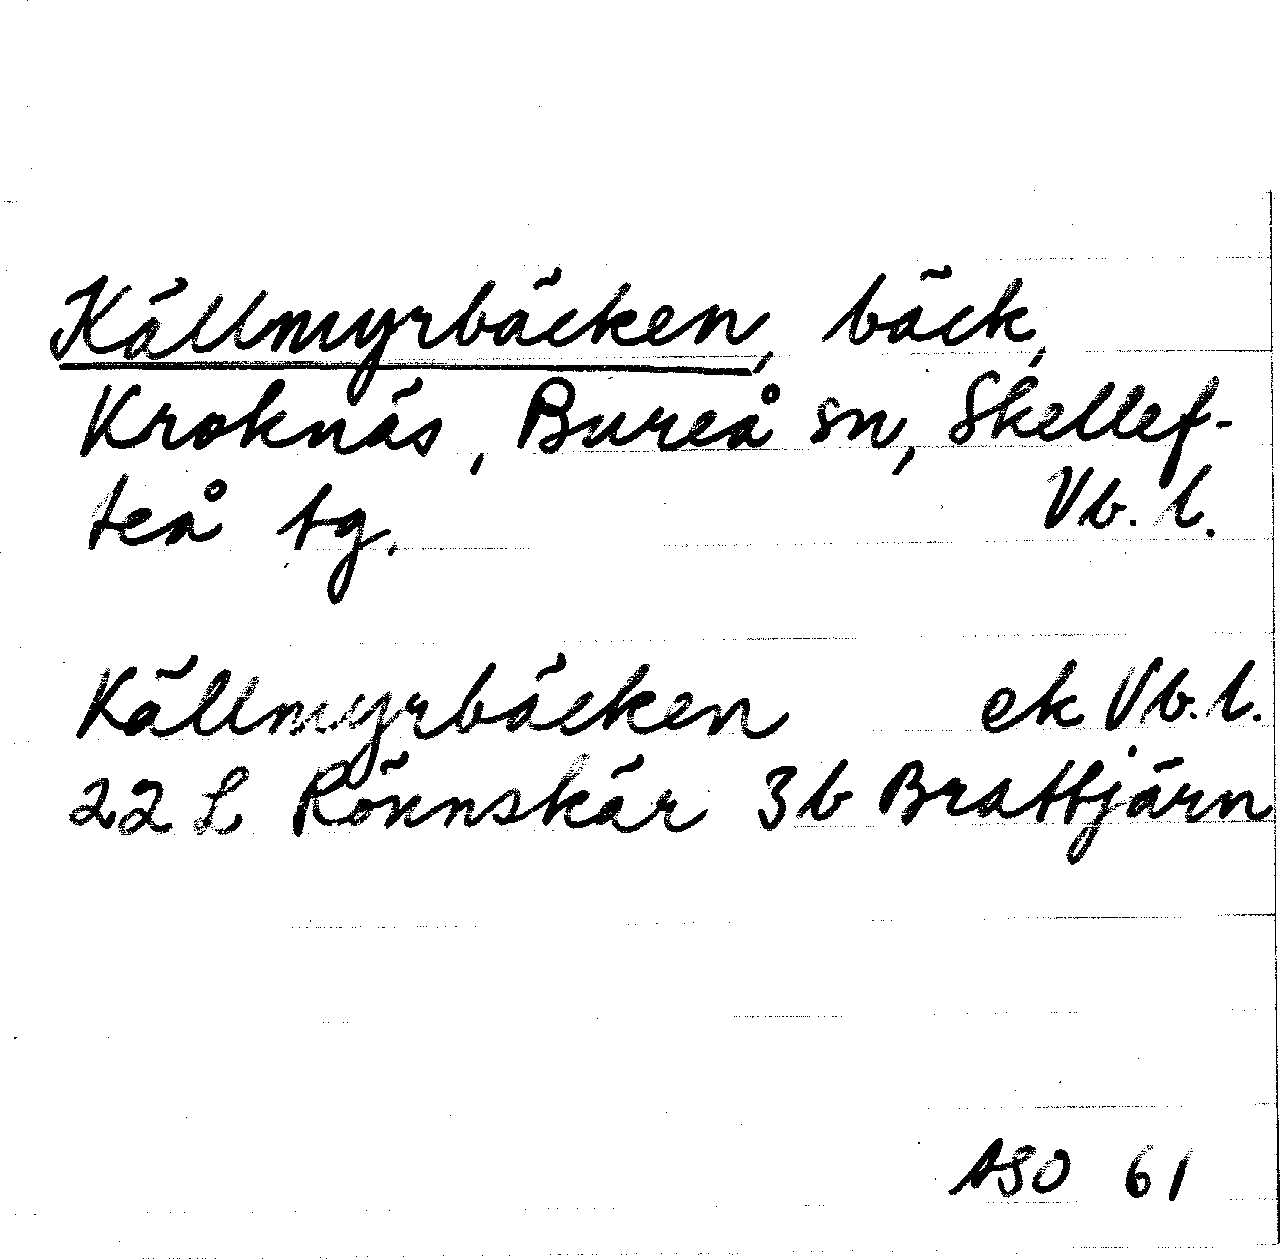 Källmyrbäcken, bäck,
Kroknäs, Bureå sn, Skellef-
teå tg. Vb. l.
Källmyrbäcken ek Vb. l.
22 L Rönnskär 3b Brattjärn
ASO 61